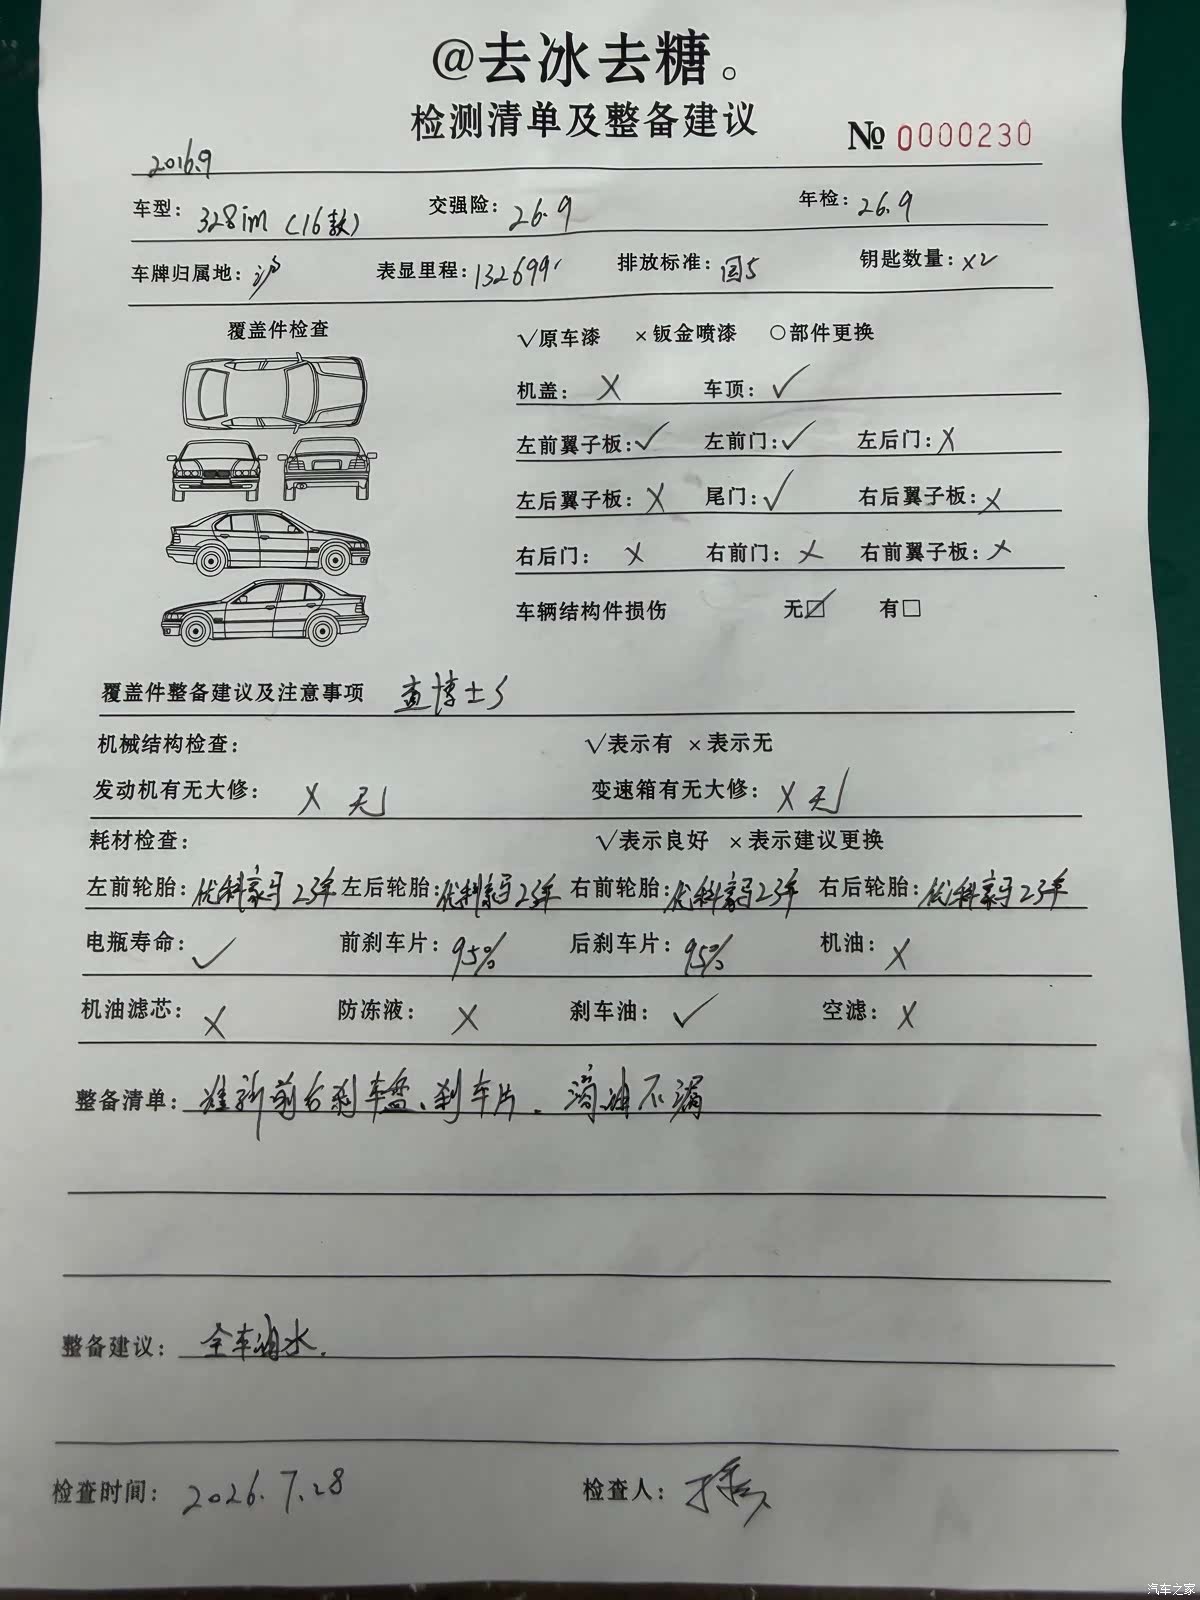 @去冰去糖。
检测清单及整备建议
№ 0000230
2016.9
车型: 328im (16款) 交强险: 26.9 年检: 26.9
车牌归属地: 沪 表显里程: 132699 排放标准: 国5 钥匙数量: x2
覆盖件检查
√原车漆 ×钣金喷漆 ○部件更换
机盖: × 车顶: √
左前翼子板: √ 左前门: √ 左后门: ×
左后翼子板: × 尾门: √ 右后翼子板: ×
右后门: × 右前门: × 右前翼子板: ×
车辆结构件损伤 无☑ 有□
覆盖件整备建议及注意事项 查博士
机械结构检查: √表示有 ×表示无
发动机有无大修: × 无 变速箱有无大修: × 无
耗材检查: √表示良好 ×表示建议更换
左前轮胎: 优科豪马 23年 左后轮胎: 优科豪马 23年 右前轮胎: 优科豪马 23年 右后轮胎: 优科豪马 23年
电瓶寿命: √ 前刹车片: 95% 后刹车片: 95% 机油: ×
机油滤芯: × 防冻液: × 刹车油: √ 空滤: ×
整备清单: 准新前后刹车盘、刹车片. 滴油不漏
整备建议: 全车油水.
检查时间: 2026.7.28 检查人:
汽车之家